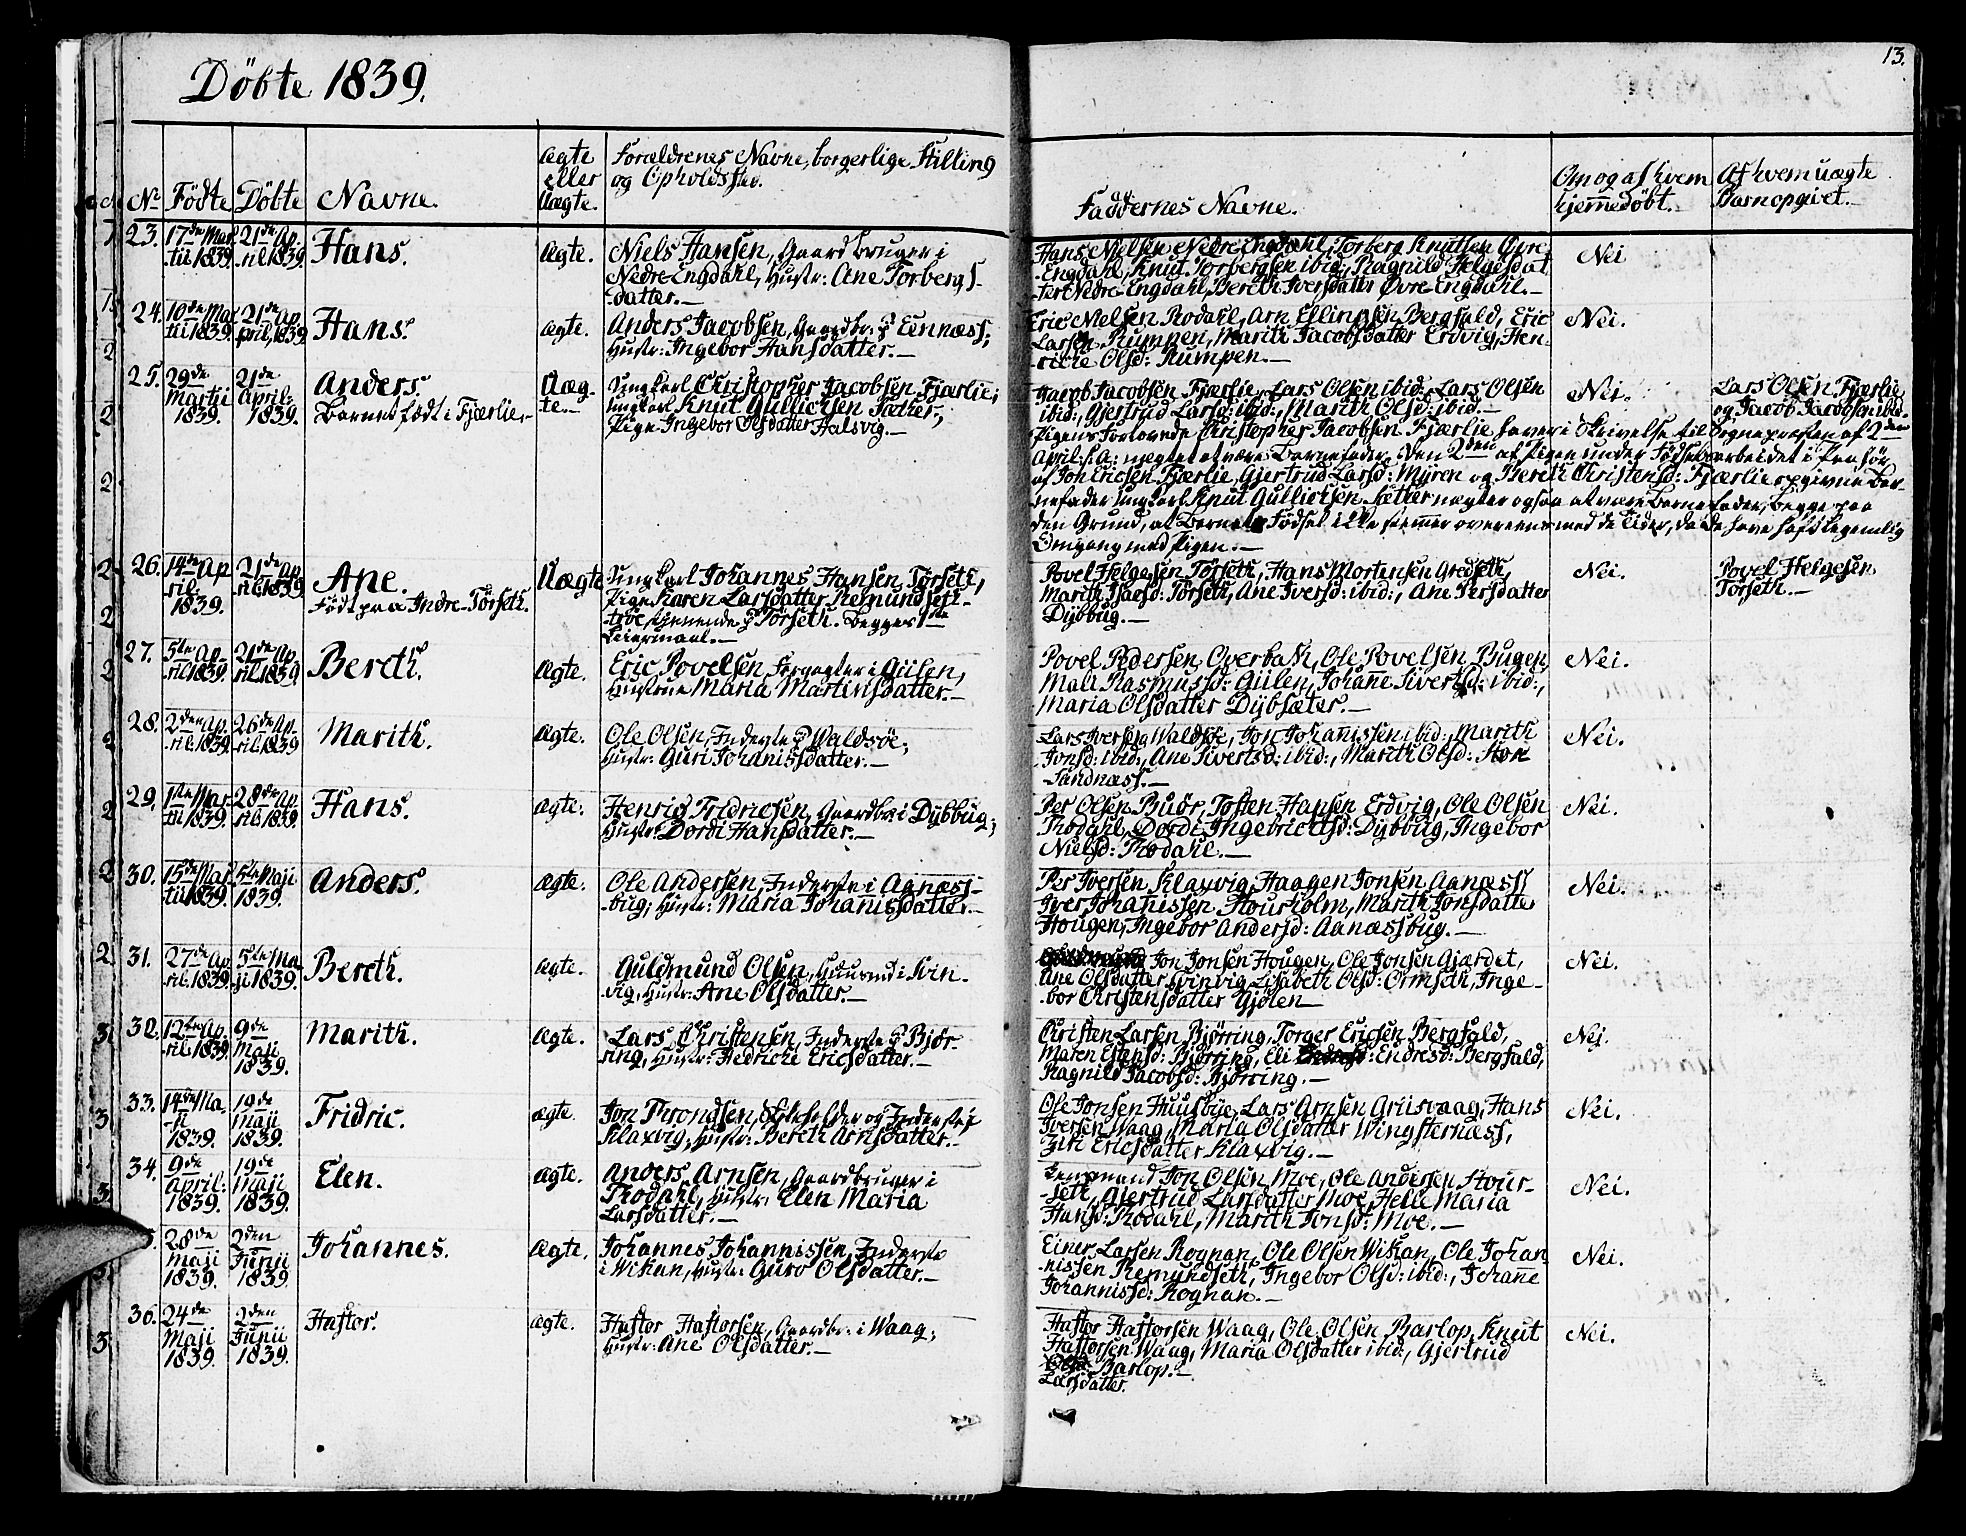 Döbte 1839.
13.
No Fødte Døbte Navne. ægte eller uægte. Forældrenes Navne, borgerlige Stilling og Opholdssted.
Faddernes Navne. Om og af hvem hjemmedöbt. Af hvem uægte Barn opgivet.
23. 17de Martii 1839. 21de April 1839. Hans. ægte. Niels Hansen, Gaardbruger i
Nedre Engdahl, Hustr: Ane Torbergs-
datter.
Hans Nielsen Nedre Engdahl, Torberg Knutsen Øvre
Engdahl, Knut Torbergsen ibid:, Ragnild Helgesdat
ter Nedre Engdahl, Bereth Iversdatter Øvre Engdahl.
Nei
24. 10de Martii 1839. 21de April, 1839. Hans. ægte. Anders Jacobsen, Gaardbr: p Eennæss,
Hustr: Ingebor Hansdatter.
Eric Nielsen Rodahl, Arn Ellingsen Bergfald, Eric
Larsen Rumpen, Marith Jacobsdatter Erdvig, Hen-
ricke Olsd: Rumpen.
Nei.
25. 29de Martii 1839. 21de April: 1839. Anders. Uæg-
te.
Barnet födt i Fjærlie.
Ungkarl Christopher Jacobsen Fjærlie;
Ungkarl Knut Gullichsen Sætter;
Pige Ingebor Olsdatter Halsvig.
Jacob Jacobsen Fjærlie, Lars Olsen ibid:, Lars Olsen
ibid:, Gjertrud Larsd: ibid:, Marith Olsd: ibid.
Nei.
Lars Olsen Fjærlie
og Jacob Jacobsen ibid.
Pigens Forlovede Christopher Jacobsen Fjærlie haver i Skrivelse til Sognepræsten af 2den
April s. A: negtet at være Barnefader. Den 2den af Pigen under Födselsarbeidet i Paahör
af Jon Ericsen Fjærlie, Gjertrud Larsd: Myren og Bereth Christensd: Fjærlie opgivne Bar-
nefader Ungkarl Knut Gullichsen Sætter negter ogsaa at være Barnefader, begge paa
den Grund, at Barnets Födsel ikke stemmer overeens med de Tider, da de have haft legemlig
Omgang med Pigen.
26. 14de April 1839. 21de April 1839. Ane. Uægte
Födt paa Indre-Törseth.
Ungkarl Johannes Hansen Törseth,
Pige Karen Larsdatter Remundset-
tjenende p Törseth. Begges 1ste
Leiermaal.
Povel Helgesen Törseth, Hans Mortensen Gredseth,
Marith Isaesd: Törseth, Ane Iversd: ibid:, Ane Persdatter
Dybbug.
Nei.
Povel Helgesen
Törseth.
27. 5te April 1839. 21de April 1839. Bereth. ægte. Eric Povelsen, Forpagter i Gülen,
Hustrue Maria Martinsdatter.
Povel Pedersen Overbak, Ole Povelsen Bugen,
Mali Rasmusd: Gülen, Johane Sivertsd: ibid:,
Maria Olsdatter Dybsæter.
Nei.
28. 2den April 1839. 26de April 1839 Marith. ægte. Ole Olsen, Inderste p Waldsöe;
Hustr: Guri Johanisdatter.
Lars Iversen Waldsöe, Jon Johanissen ibid:, Marith
Jonsd: ibid:, Ane Sivertsd: ibid:, Marith Olsd: Stor
Sandnæss.
Nei.
29. 1ste Martii 1839. 28de April 1839. Hans. ægte. Henric Fridricsen, Gaardbr: i Dybbug;
Hustr: Dordi Hansdatter.
Per Olsen Buör, Tosten Hansen Erdvig, Ole Olsen
Rodahl, Dordi Ingebrichtsd: Dybbug, Ingebor
Nielsd: Rodahl.
Nei.
30. 15de Martii 1839. 5te Maji 1839. Anders. ægte. Ole Andersen, Inderste i Agnæss-
bug; Hustr: Maria Johanisdatter.
Per Iversen Klaxvig, Haagen Jonsen Aanæss
Iver Johanissen Stoursholm, Marith Jonsdatter
Hougen, Ingebor Andersd: Aanæssbug.
Nei.
31. 27de April 1839. 5te Maji 1839. Bereth. ægte. Guldmund Olsen, Huusmd i Svin-
vig, Hustr: Ane Olsdatter.
Jon Jonsen Hougen, Ole Jonsen Gjærdet,
Ane Olsdatter Svinvig, Lisabeth Olsd: Ormseth, Inge-
bor Christensdatter Gjölen
Nei.
32. 12te April 1839 9de Maji 1839. Marith. ægte. Lars Christensen, Inderste p Björ-
ring, Hustr: Fredricke Ericsdatter.
Christen Larsen Bjørring, Torger Ericsen Bergfald,
Maren Estensd: Bjørring, Eli Endresd: Bergfald,
Ragnild Jacobsd: Bjørring.
Nei.
33. 14de Maji 1839. 19de Maji 1839. Fridric. ægte. Jon Throndsen, Skoleholder og Inderste i
Klaxvig, Hustr: Bereth Arnsdatter.
Ole Jonsen Huusbye, Lars Arnsen Griisvaag, Hans
Iversen Waag, Maria Olsdatter Wingsternæss,
Ziri Ericsdatter Klaxvig.
Nei.
34. 9de April: 1839. 19de Maji 1839. Elen. ægte. Anders Arnsen, Gaardbruger i
Rodahl, Hustr: Elen Maria
Larsdatter.
Jon Olsen Moe, Ole Andersen Stour-
seth, Gjertrud Larsdatter Moe, Helle Maria
Hansd: Rodahl, Marith Jonsd: Moe.
Nei.
28de Maji 1839. 2den Junii 1839. Johannes. ægte. Johannes Johannissen, Inderste
i Wikan, Hustr: Guro Olsdatter.
Einer Larsen Rognan, Ole Olsen Wikan, Ole Johan-
nissen Remundseth, Ingebor Olsd: ibid:, Johane
Johannisd: Rognan.
Nei.
36. 24de Maji 1839. 2den Junii 1839. Hastor. ægte. Hastor Hastorsen, Gaardbr: i Waag;
Hustr: Ane Olsdatter.
Hastor Hastorsen Waag, Ole Olsen Barlop, Knut
Hastorsen Waag, Maria Olsdatter ibid:, Gjertrud
Barlop.
Larsdatter.
Nei.